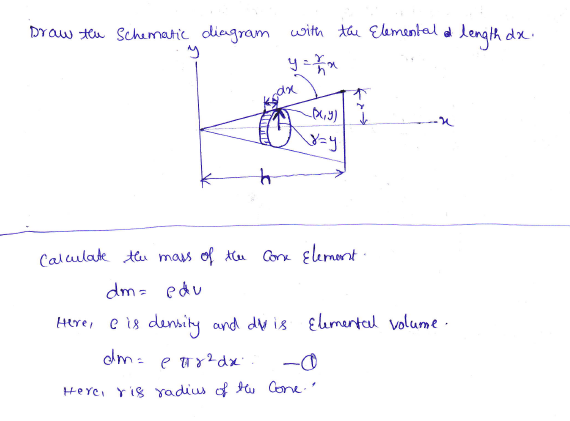 Draw the Schematic diagram with the Elemental length dx.
y
y = r/h x
dx
(x,y)
r
x
r=y
h
Calculate the mass of the Cone Element.
dm = ρdv
Here, ρ is density and dv is Elemental volume.
dm = ρ π r² dx. —①
Here, r is radius of the Cone.